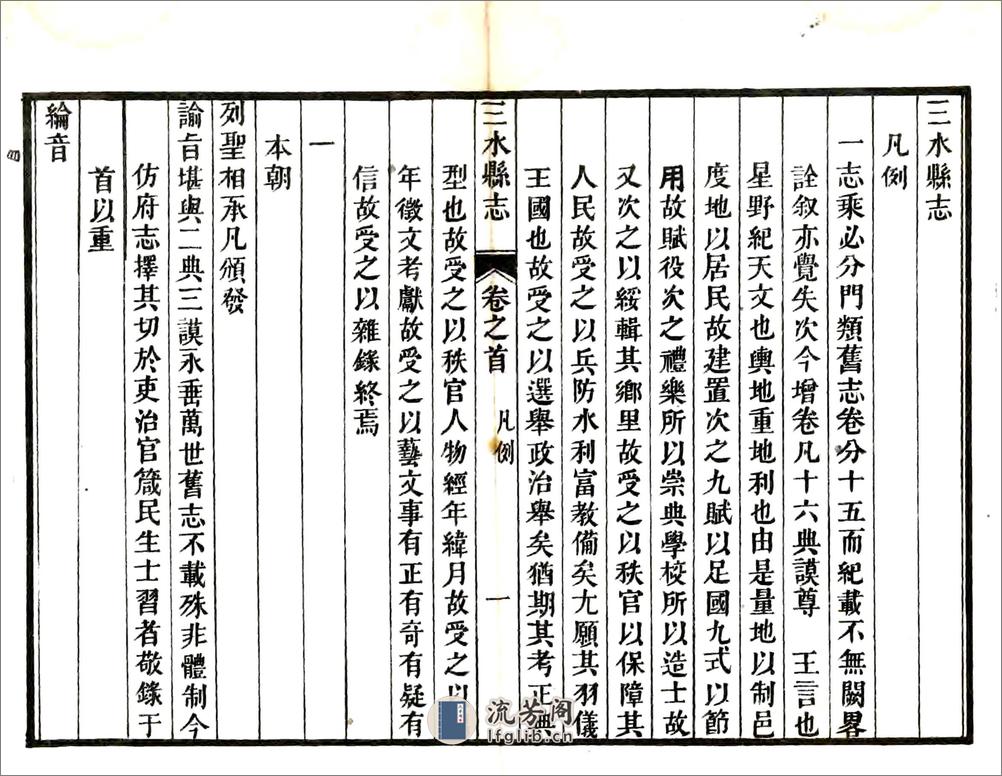 三水縣志
凡例
一志乘必分門類舊志卷分十五而紀載不無闕畧
詮敘亦覺失次今增卷凡十六典謨尊　王言也
星野紀天文也輿地重地利也由是量地以制邑
度地以居民故建置次之九賦以足國九式以節
用故賦役次之禮樂所以崇典學校所以造士故
又次之以綏輯其鄉里故受之以秩官以保障其
人民故受之以兵防水利富教備矣尤願其羽儀
王國也故受之以選舉政治舉矣猶期其考正典
三水縣志　卷之首　凡例　一
型也故受之以秩官人物經年緯月故受之以
年徵文考獻故受之以藝文事有正有奇有疑有
信故受之以雜錄終焉
一
本朝
列聖相承凡頒發
諭旨堪與二典三謨永垂萬世舊志不載殊非體制今
仿府志擇其切於吏治官箴民生士習者敬錄于
首以重
綸音
四
流芳阁
lfglib.cn